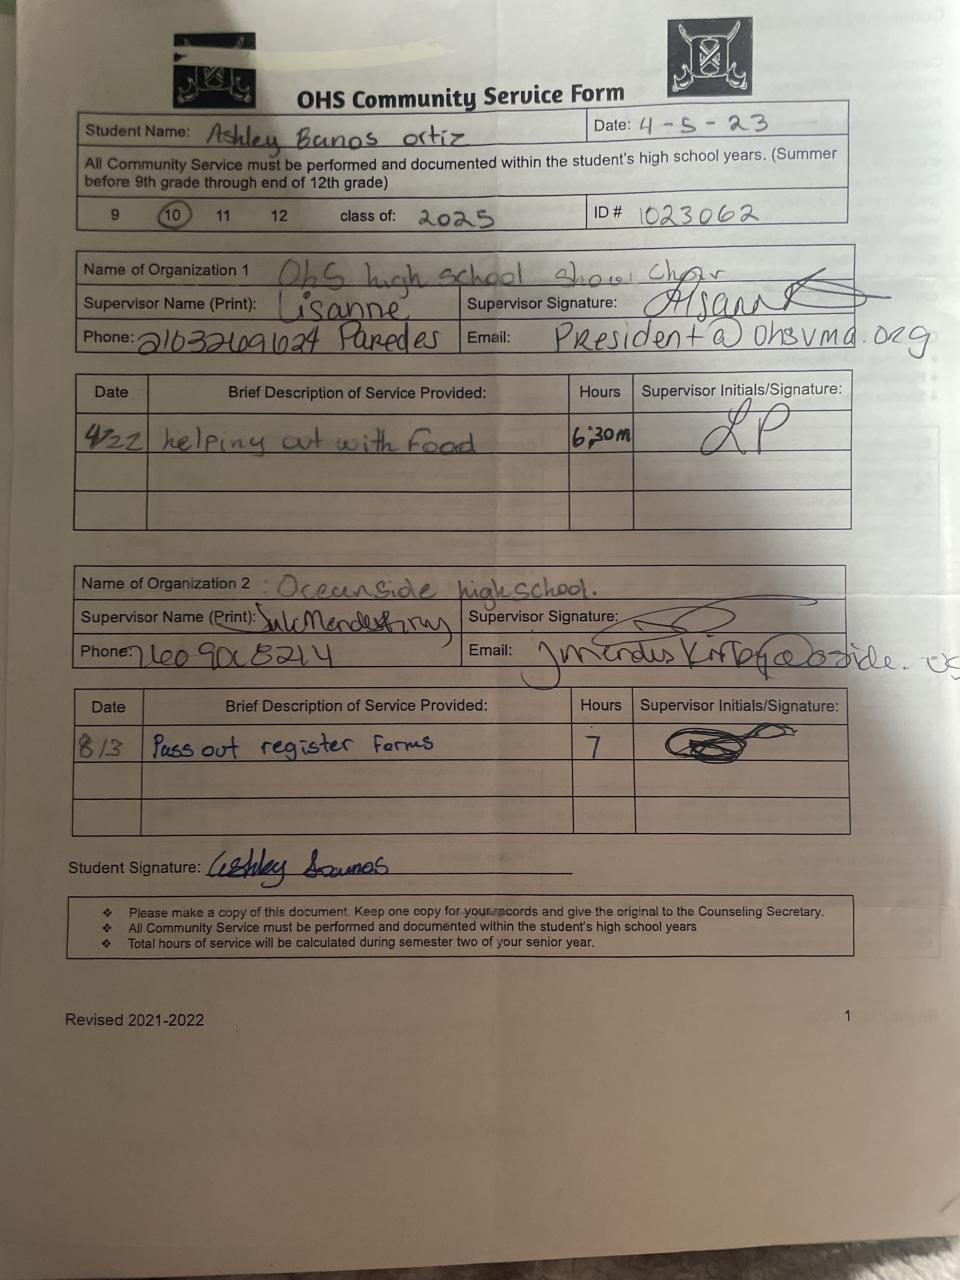 OHS Community Service Form
Student Name: Ashley Banos ortiz Date: 4-5-23
All Community Service must be performed and documented within the student's high school years. (Summer
before 9th grade through end of 12th grade)
9 10 11 12 class of: 2025 ID # 1023062
Name of Organization 1 Ohs high school show choir
Supervisor Name (Print): Lisanne Supervisor Signature:
Phone: Paredes Email: President@ohsvma.org
Date Brief Description of Service Provided: Hours Supervisor Initials/Signature:
4/22 helping out with Food 6:30m LP
Name of Organization 2 : Oceanside highschool.
Supervisor Name (Print): Supervisor Signature:
Phone: 7609018214 Email:
Date Brief Description of Service Provided: Hours Supervisor Initials/Signature:
8/3 Pass out register Forms 7
Student Signature: Ashley Banos
❖ Please make a copy of this document. Keep one copy for your records and give the original to the Counseling Secretary.
❖ All Community Service must be performed and documented within the student's high school years
❖ Total hours of service will be calculated during semester two of your senior year.
Revised 2021-2022 1